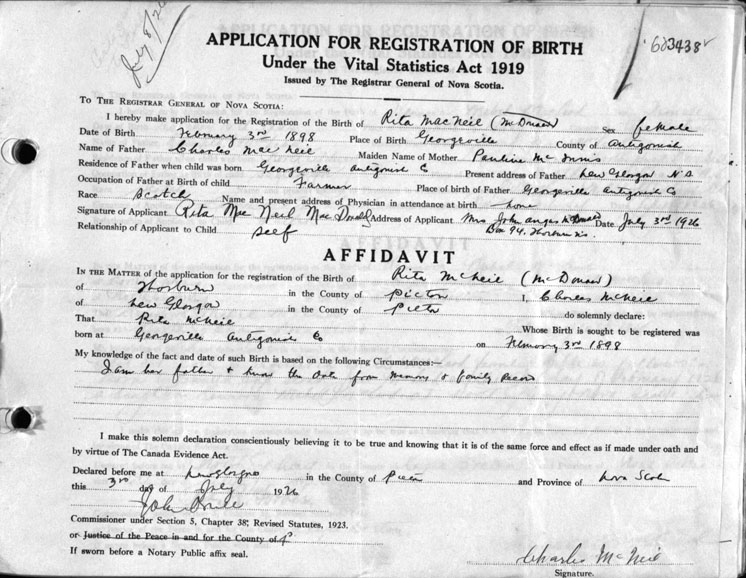 July 8/26
603438
APPLICATION FOR REGISTRATION OF BIRTH
Under the Vital Statistics Act 1919
Issued by The Registrar General of Nova Scotia.
To The Registrar General of Nova Scotia:
I hereby make application for the Registration of the Birth of Rita MacNeil (McDonald) Sex female
Date of Birth February 3rd 1898 Place of Birth Georgeville County of Antigonish
Name of Father Charles MacNeil Maiden Name of Mother Pauline McInnis
Residence of Father when child was born Georgeville Antigonish Co Present address of Father New Glasgow N.S.
Occupation of Father at Birth of child Farmer Place of birth of Father Georgeville Antigonish Co
Race Scotch Name and present address of Physician in attendance at birth none
Signature of Applicant Rita MacNeil MacDonald Address of Applicant Mrs John Angus McDonald Date July 3rd 1926
Relationship of Applicant to Child self Box 94, Thorburn N.S.
AFFIDAVIT
In the Matter of the application for the registration of the Birth of Rita McNeil (McDonald)
of Thorburn in the County of Pictou I, Charles McNeil
of New Glasgow in the County of Pictou do solemnly declare:
That Rita McNeil Whose Birth is sought to be registered was
born at Georgeville Antigonish Co on February 3rd 1898
My knowledge of the fact and date of such Birth is based on the following Circumstances:—
I am her father & know the date from memory & family record
I make this solemn declaration conscientiously believing it to be true and knowing that it is of the same force and effect as if made under oath and
by virtue of The Canada Evidence Act.
Declared before me at New Glasgow in the County of Pictou and Province of Nova Scotia
this 3rd day of July 1926
John
Commissioner under Section 5, Chapter 38; Revised Statutes, 1923.
or Justice of the Peace in and for the County of
If sworn before a Notary Public affix seal.
Charles McNeil
Signature.